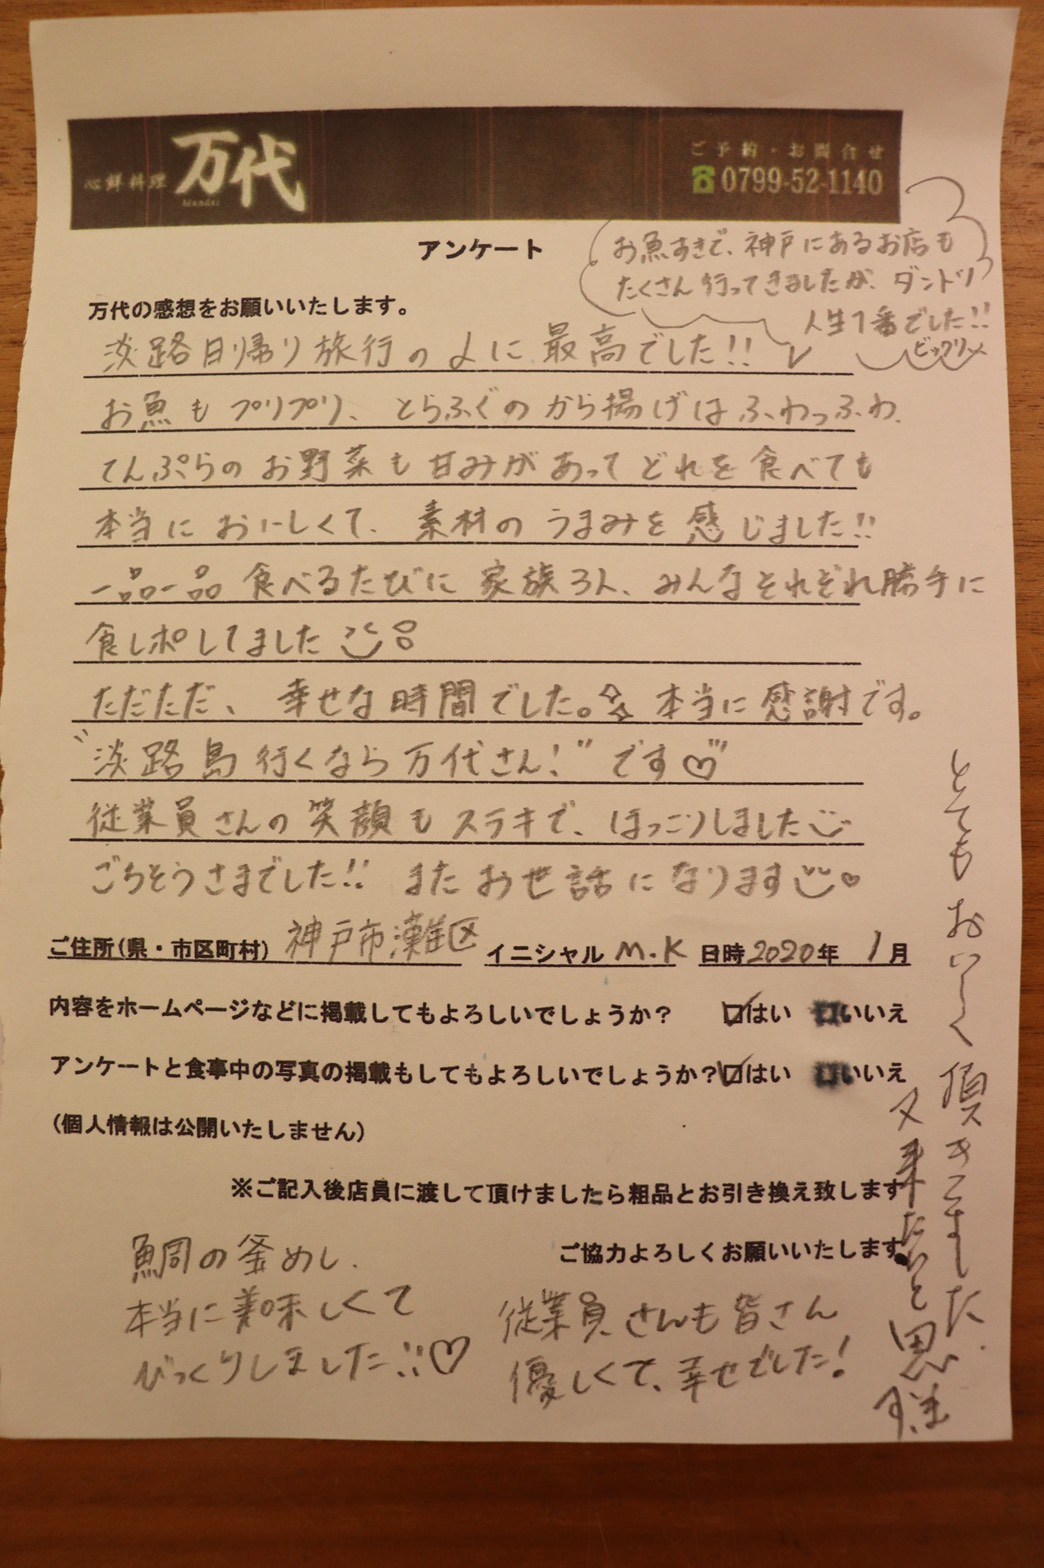 心鮮料理 万代
bandai
ご予約・お問合せ
0799-52-1140
アンケート
お魚すきで、神戸にあるお店も
たくさん行ってきましたが、ダントツ
人生1番でした!!
ビックリ
万代の感想をお願いいたします。
淡路日帰り旅行の〆に最高でした!!
お魚もプリプリ、とらふぐのから揚げはふわっふわ、
てんぷらのお野菜も甘みがあってどれを食べても
本当においしくて、素材のうまみを感じました!!
一品一品食べるたびに家族3人、みんなそれぞれ勝手に
食レポしてました
ただただ、幸せな時間でした。本当に感謝です。
"淡路島行くなら万代さん!"です♡
従業員さんの笑顔もステキで、ほっこりしました
ごちそうさまでした!! またお世話になります
ご住所(県・市区町村) 神戸市灘区 イニシャル M.K 日時2020年 1月
内容をホームページなどに掲載してもよろしいでしょうか? ☑はい ■いいえ
アンケートと食事中の写真の掲載もしてもよろしいでしょうか?☑はい ■いいえ
(個人情報は公開いたしません)
※ご記入後店員に渡して頂けましたら粗品とお引き換え致します
ご協力よろしくお願いいたします。
鯛の釜めし、
本当に美味しくて
びっくりしました!!♡
従業員さんも皆さん
優しくて、幸せでした!
とてもおいしく頂きました。
又来たいと思います